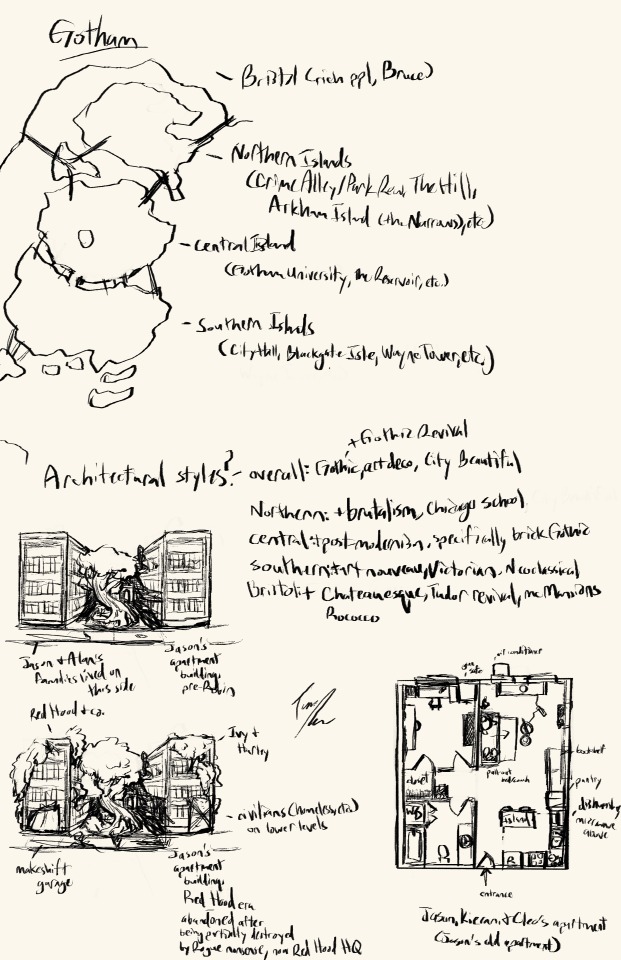 Gotham
Bristol (rich ppl, Bruce)
Northern Islands
(Crime Alley/Park Row, The Hill,
Arkham Island (the Narrows), etc)
Central Island
(Gotham University, the Reservoir, etc.)
Southern Islands
(City Hall, Blackgate Isle, Wayne Tower, etc.)
+Gothic Revival
Architectural styles? - overall: Gothic, art deco, City Beautiful
Northern: + brutalism, Chicago school
central: + post-modernism, specifically brick Gothic
southern: + art nouveau, Victorian, Neoclassical
Bristol: + Chateauesque, Tudor revival, mcMansions
Rococco
Jason & Alan's
families lived on
this side
Jason's
apartment
building,
pre-Robin
Red Hood & co.
Ivy +
Harley
civilians (homeless, etc)
on lower levels
makeshift
garage
Jason's
apartment
building,
Red Hood era
abandoned after
being partially destroyed
by Rogue nonsense, now Red Hood HQ
gun
safe
air conditioner
bookshelf
closet
pull-out
bed/couch
pantry
WD
island
dishwasher
microwave
above
entrance
Jason, Kieran, & Cleo's apartment
(Jason's old apartment)